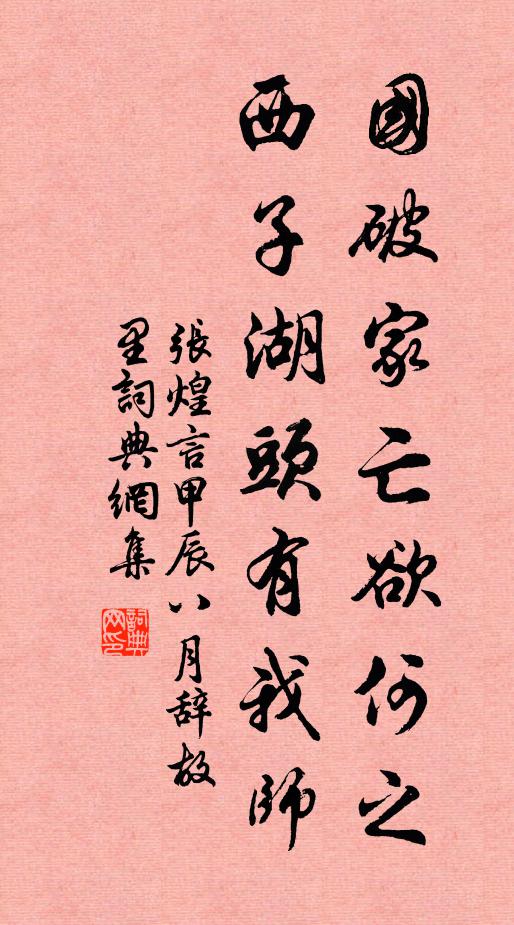 國破家亡欲何之
西子湖頭有我師
張煌言甲辰八月辞故
里詞典網集
詞典网印